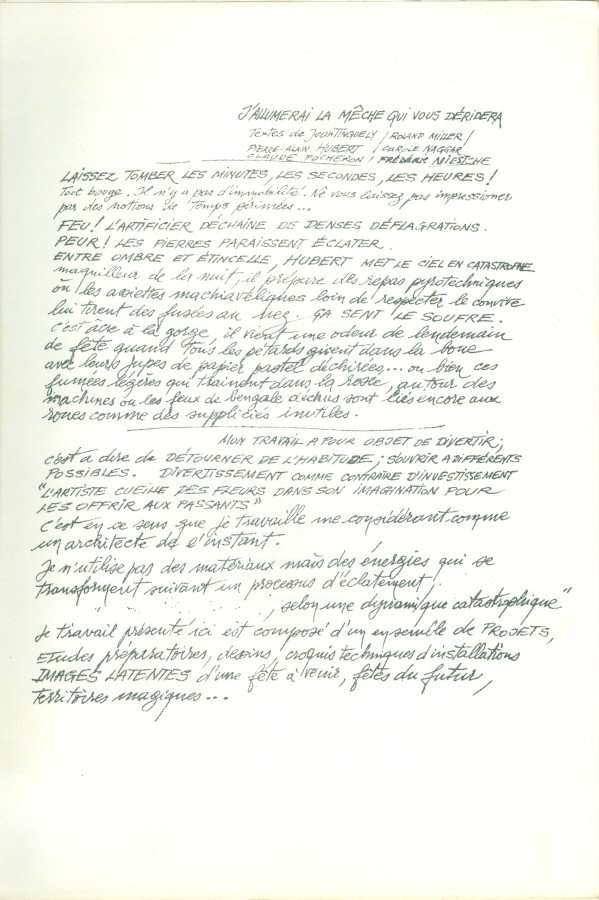 J'ALLUMERAI LA MÊCHE QUI VOUS DÉRIDERA
Textes de Jean TINGUELY / ROLAND MILLER /
PIERRE-ALAIN HUBERT / CAROLE NAGGAR
CLAUDE POCHERON / FRÉDÉRIC NIETSCHE
LAISSEZ TOMBER LES MINUTES, LES SECONDES, LES HEURES!
Tout bouge. Il n'y a pas d'immobilité. Ne vous laissez pas impressionner
par des notions de Temps périmées...
FEU! L'ARTIFICIER DÉCHAINE DE DENSES DÉFLAGRATIONS.
PEUR! LES PIERRES PARAISSENT ÉCLATER.
ENTRE OMBRE ET ÉTINCELLE, HUBERT MET LE CIEL EN CATASTROPHE
maquilleur de la nuit, il prépare des repas pyrotechniques
où les assiettes machiavéliques loin de respecter le convive
lui tirent des fusées au nez. ÇA SENT LE SOUFRE.
C'est âcre à la gorge, il vient une odeur de lendemain
de fête quand tous les pétards gisent dans la boue
avec leurs jupes de papier pastel déchirées... ou bien ces
fumées légères qui traînent dans la rosée, autour des
machines où les feux de bengale déchus sont liés encore aux
roues comme des suppliciés inutiles.
MON TRAVAIL A POUR OBJET DE DIVERTIR;
c'est a dire de DÉTOURNER DE L'HABITUDE; S'OUVRIR A DIFFÉRENTS
POSSIBLES. DIVERTISSEMENT COMME CONTRAIRE D'INVESTISSEMENT
"L'ARTISTE CUEILLE DES FLEURS DANS SON IMAGINATION POUR
LES OFFRIR AUX PASSANTS"
C'est en ce sens que je travaille me considérant comme
un architecte de l'instant.
Je n'utilise pas des matériaux mais des énergies qui se
transforment suivant un processus d'éclatement
, selon une dynamique catastrophique"
Le travail présenté ici est composé d'un ensemble de PROJETS,
ETUDES préparatoires, dessins, croquis techniques d'installations
IMAGES LATENTES d'une fête à venir, fêtes du futur,
territoires magiques...